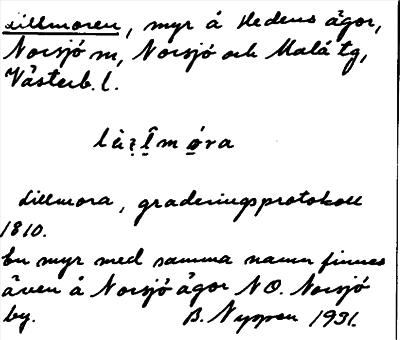 Lillmoren, myr å Hedens ägor,
Norsjö sn, Norsjö och Malå tg,
Västerb. l.
Lillmora, graderingsprotokoll
1810.
En myr med samma namn finnes
även å Norsjö ägor NO. Norsjö
by. B. Nyman 1931.